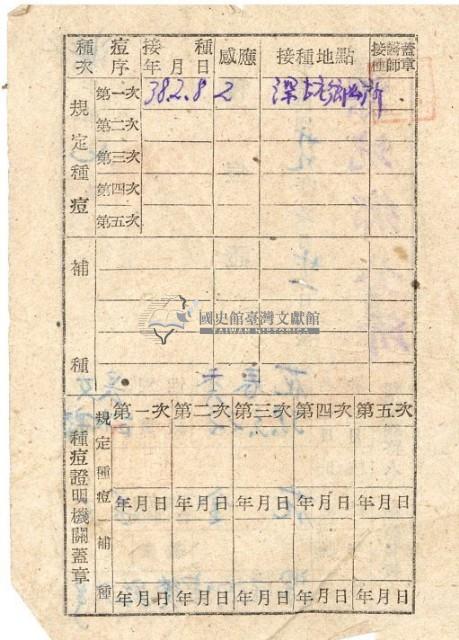 種痘 接種 感應 接種地點 接種醫師蓋章
次序 年月日
規定種痘
第一次 38.2.8 2 深坑鄉公所
第二次
第三次
第四次
第五次
補種
國史館臺灣文獻館
TAIWAN HISTORICA
種痘證明機關蓋章
第一次 第二次 第三次 第四次 第五次
規定種痘
年月日 年月日 年月日 年月日 年月日
補種
年月日 年月日 年月日 年月日 年月日